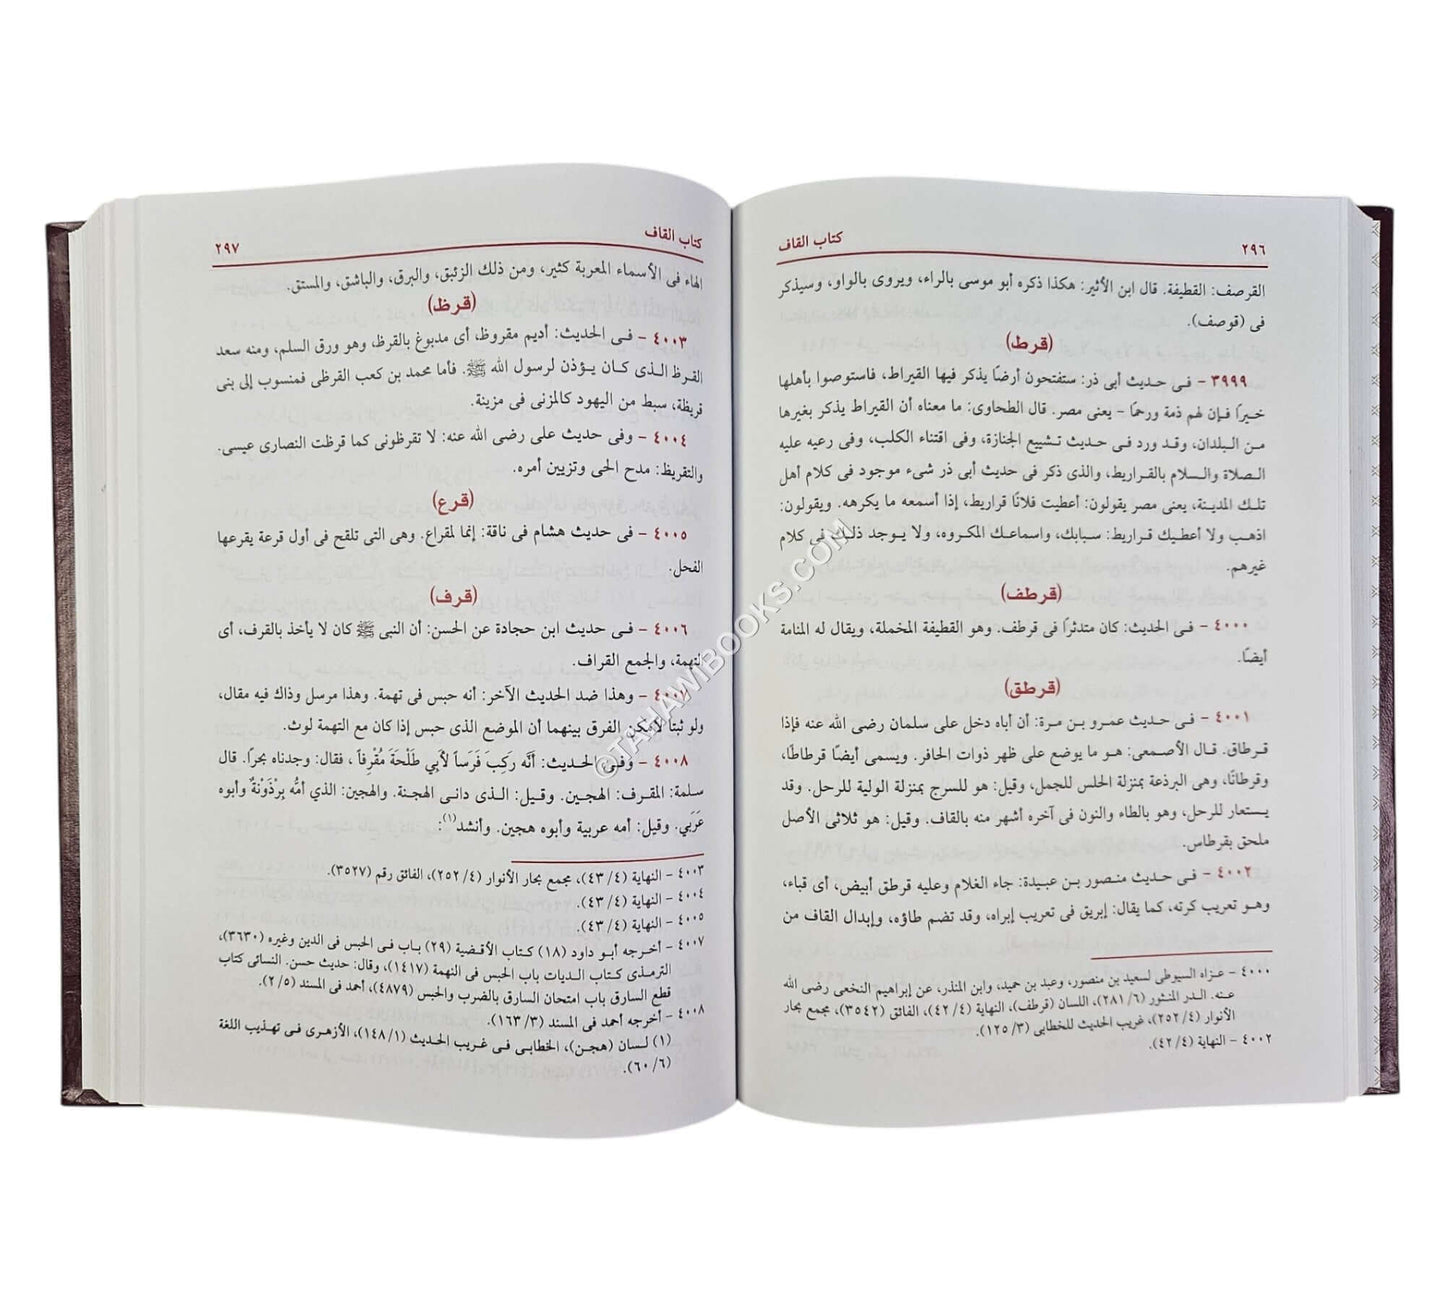 ٢٩٦
كتاب القاف
القرصف: القطيفة. قال ابن الأثير: هكذا ذكره أبو موسى بالراء، ويروى بالواو، وسيذكر
فى (قوصف).
(قرط)
٣٩٩٩ - فـى حـديث أبى ذر: ستفتحون أرضًا يذكر فيها القيراط، فاستوصوا بأهلها
خـيرًا فـإن لهم ذمة ورحمًا - يعنى مصر. قال الطحاوى: ما معناه أن القيراط يذكر بغيرها
مـن الـبلدان، وقـد ورد فـى حديث تـشييع الجنازة، وفى اقتناء الكلب، وفى رعيه عليه
الـصلاة والـسلام بالقـراريط، والذى ذكر فى حديث أبى ذر شىء موجود فى كلام أهل
تلـك المديـنة، يعنى مصر يقولون: أعطيت فلانًا قراريط، إذا أسمعه ما يكرهه. ويقولون:
اذهـب ولا أعطـيك قـراريط: سـبابك، واسماعـك المكـروه، ولا يـوجد ذلك فى كلام
غيرهم.
(قرطف)
٤٠٠٠ - فـى الحديث: كان متدثرًا فى قرطف. وهو القطيفة المخملة، ويقال له المنامة
أيضًا.
(قرطق)
٤٠٠١ - فـى حـديث عمـرو بـن مـرة: أن أباه دخل على سلمان رضى الله عنه فإذا
قـرطاق. قـال الأصـمعى: هـو ما يوضع على ظهر ذوات الحافر. ويسمى أيضًا قرطاطًا،
وقـرطانًا، وهى البرذعة بمنزلة الحلس للجمل، وقيل: هو للسرج بمنزلة الولية للرحل. وقد
يـستعار للرحل، وهو بالطاء والنون فى آخره أشهر منه بالقاف. وقيل: هو ثلاثى الأصل
ملحق بقرطاس.
٤٠٠٢ - فـى حديث مـنصور بـن عبـيدة: جاء الغلام وعليه قرطق أبيض، أى قباء،
وهـو تعريب كرته، كما يقال: إبريق فى تعريب إبراه، وقد تضم طاؤه، وإبدال القاف من
٤٠٠٠ - عـزاه السيوطى لسعيد بن منصور، وعبد بن حميد، وابن المنذر، عن إبراهيم النخعى رضى الله
عنه. الـدر المنثور (٦/ ٢٨١)، اللسان (قرطف)، النهاية (٤/ ٤٢)، الفائق (٣٥٤٢)، مجمع بحار
الأنوار (٤/ ٢٥٢)، غريب الحديث للخطابى (٣/ ١٢٥).
٤٠٠٢ - النهاية (٤/ ٤٢).
كتاب القاف
٢٩٧
الهاء فى الأسماء المعربة كثير، ومن ذلك الزئبق، والبرق، والباشق، والمستق.
(قرظ)
٤٠٠٣ - فـى الحديث: أديم مقروظ، أى مدبوغ بالقرظ، وهو ورق السلم، ومنه سعد
القرظ الـذى كـان يـؤذن لرسول الله ﷺ. فأما محمد بن كعب القرظى فمنسوب إلى بنى
قريظة، سبط من اليهود كالمزنى فى مزينة.
٤٠٠٤ - وفى حديث على رضى الله عنه: لا تقرظونى كما قرظت النصارى عيسى.
والتقريظ: مدح الحى وتزيين أمره.
(قرع)
٤٠٠٥ - فى حديث هشام فى ناقة: إنها لمقراع. وهى التى تلقح فى أول قرعة يقرعها
الفحل.
(قرف)
٤٠٠٦ - فـى حديث ابن حجادة عن الحسن: أن النبى ﷺ كان لا يأخذ بالقرف، أى
التهمة، والجمع القراف.
٤٠٠٧ - وهذا ضد الحديث الآخر: أنه حبس فى تهمة. وهذا مرسل وذاك فيه مقال،
ولو ثبتا لأمكن الفرق بينهما أن الموضع الذى حبس إذا كان مع التهمة لوث.
٤٠٠٨ - وفى الحـديث: أنَّه ركِبَ فَرَساً لأبِي طَلْحَةَ مُقْرِفاً ، فقال: وجدناه بحرًا. قال
سلمة: المقرف: الهجين. وقيل: الـذى دانى الهجنة. والهجين: الذي أمُّه بِرْذَوْنةٌ وأبوه
عَرَبي. وقيل: أمه عربية وأبوه هجين. وأنشد(١):
٤٠٠٣ - النهاية (٤/ ٤٣)، مجمع بحار الأنوار (٤/ ٢٥٢)، الفائق رقم (٣٥٢٧).
٤٠٠٤ - النهاية (٤/ ٤٣).
٤٠٠٥ - النهاية (٤/ ٤٣).
٤٠٠٧ - أخـرجه أبـو داود (١٨) كـتاب الأقـضية (٢٩) بـاب فـى الحبس فى الدين وغيره (٣٦٣٠)،
الترمـذى كتـاب الـديات باب الحبس فى التهمة (١٤١٧)، وقال: حديث حسن. النسائى كتاب
قطع السارق باب امتحان السارق بالضرب والحبس (٤٨٧٩)، أحمد فى المسند (٥/ ٢).
٤٠٠٨ - أخرجه أحمد فى المسند (٣/ ١٦٣).
(١) لـسان (هجـن)، الخطابـى فـى غريب الحديث (١/ ١٤٨)، الأزهـرى فـى تهـذيب اللغة
(٦/ ٦٠).
©TAHAWIBOOKS.COM